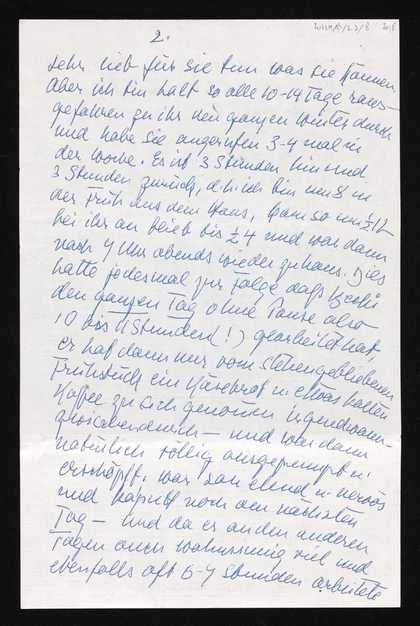 2.
sehr lieb für sie tun was sie können
aber ich bin halt so alle 10-14 Tage raus-
gefahren zu ihr den ganzen Winter durch
und habe sie angerufen 3-4 mal in
der Woche. Es ist 3 Stunden hin und
3 Stunden zurück, d.h. ich bin um 8 in
der Früh aus dem Haus, kam so um ½12
bei ihr an blieb bis ½4 und war dann
nach 7 Uhr abends wieder zuhaus. Dies
hatte jedesmal zur Folge daß
den ganzen Tag ohne Pause also
10 bis 11 Stunden (!) gearbeitet hat,
er hat dann nur vom stehengebliebenen
Frühstück ein Käsebrot u. etwas kalten
Kaffee zu sich genommen irgendwann
zwischendurch — und war dann
natürlich völlig ausgepumpt u.
erschöpft, war sau elend u. nervös
und kaputt noch den nächsten
Tag — und da er an den anderen
Tagen auch wahnsinnig viel und
ebenfalls oft 6-7 Stunden arbeitete